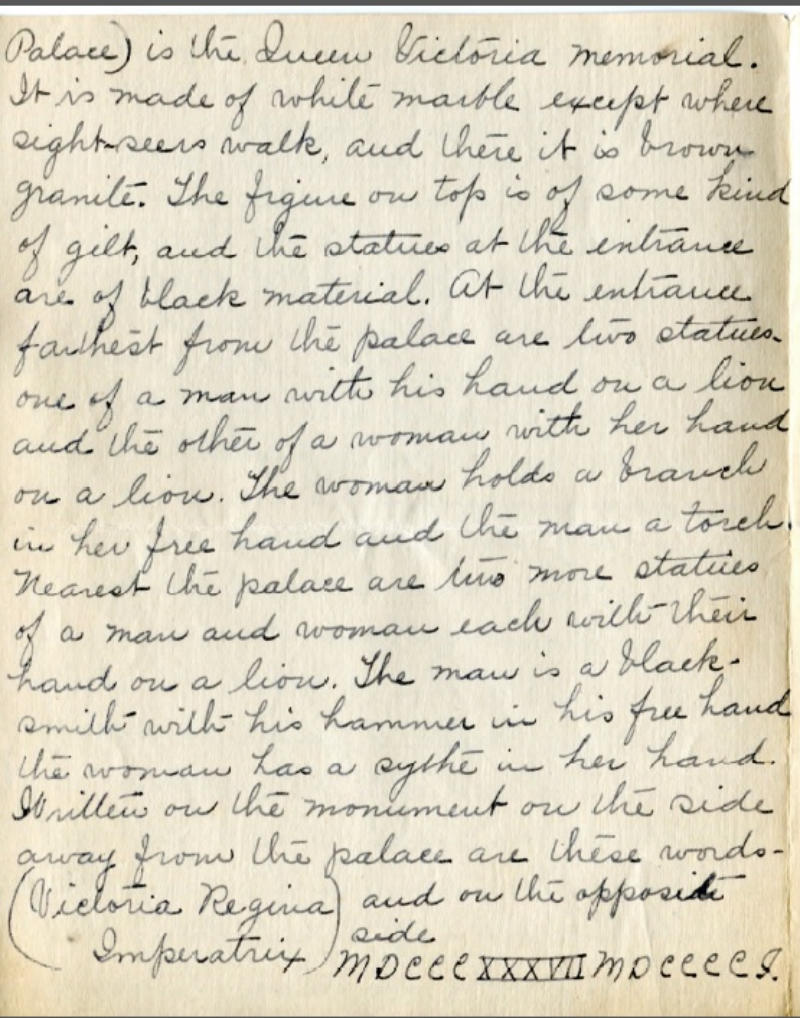 Palace) is the Queen Victoria memorial.
It is made of white marble except where
sight-seers walk, and there it is brown
granite. The figure on top is of some kind
of gilt, and the statues at the entrance
are of black material. At the entrance
farthest from the palace are two statues-
one of a man with his hand on a lion
and the other of a woman with her hand
on a lion. The woman holds a branch
in her free hand and the man a torch.
Nearest the palace are two more statues
of a man and woman each with their
hand on a lion. The man is a black-
smith with his hammer in his free hand
the woman has a sythe in her hand.
Written on the monument on the side
away from the palace are these words-
(Victoria Regina
Imperatrix) and on the opposite
side
MDCCCXXXVII MDCCCCI.